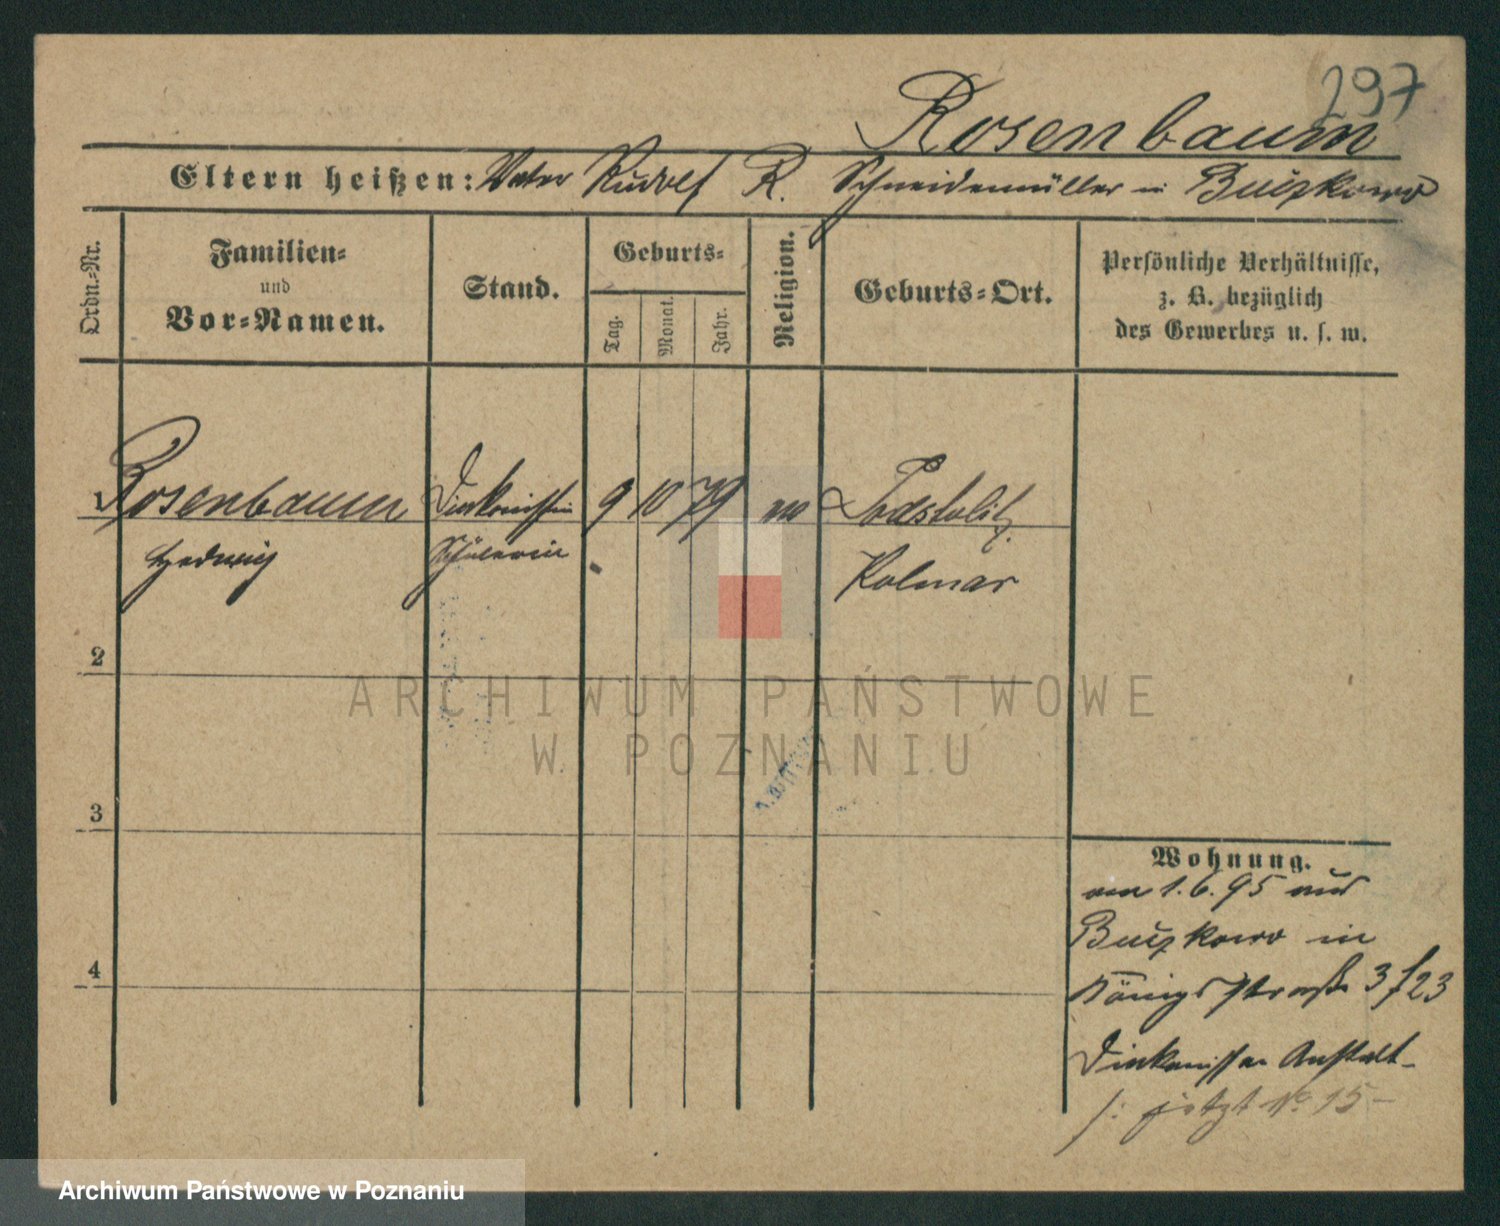 297
Rosenbaum
Eltern heißen: Vater Rudolf R. Schneidemüller in Buczkowo
Ordn.-Nr.
Familien-
und
Vor-Namen.
Stand.
Geburts-
Tag.
Monat.
Jahr.
Religion.
Geburts-Ort.
Persönliche Verhältnisse,
z. B. bezüglich
des Gewerbes u. s. w.
1 Rosenbaum Diakonissin 9 10 79 ev Podstolitz
Hedwig Schülerin Kolmar
2
ARCHIWUM PAŃSTWOWE
W POZNANIU
3
Wohnung.
am 1.6.95 aus
Buczkowo in
Königsstraße 3/23
Diakonissen Anstalt-
/: jetzt No 15-
4
Archiwum Państwowe w Poznaniu